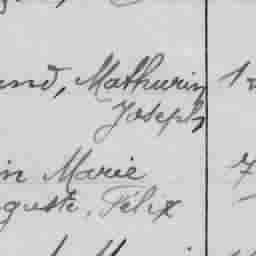 and, Mathurin
Joseph
in Marie
guste, Félix